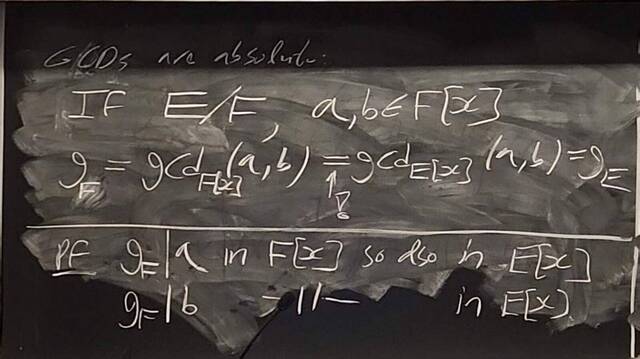 GCDs are absolute:
IF E/F, a,b∈F[x]
g_F = gcd_F[x](a,b) = gcd_E[x](a,b) = g_E
↑
!
PF g_F|a in F[x] so also in E[x]
g_F|b -11- in E[x]